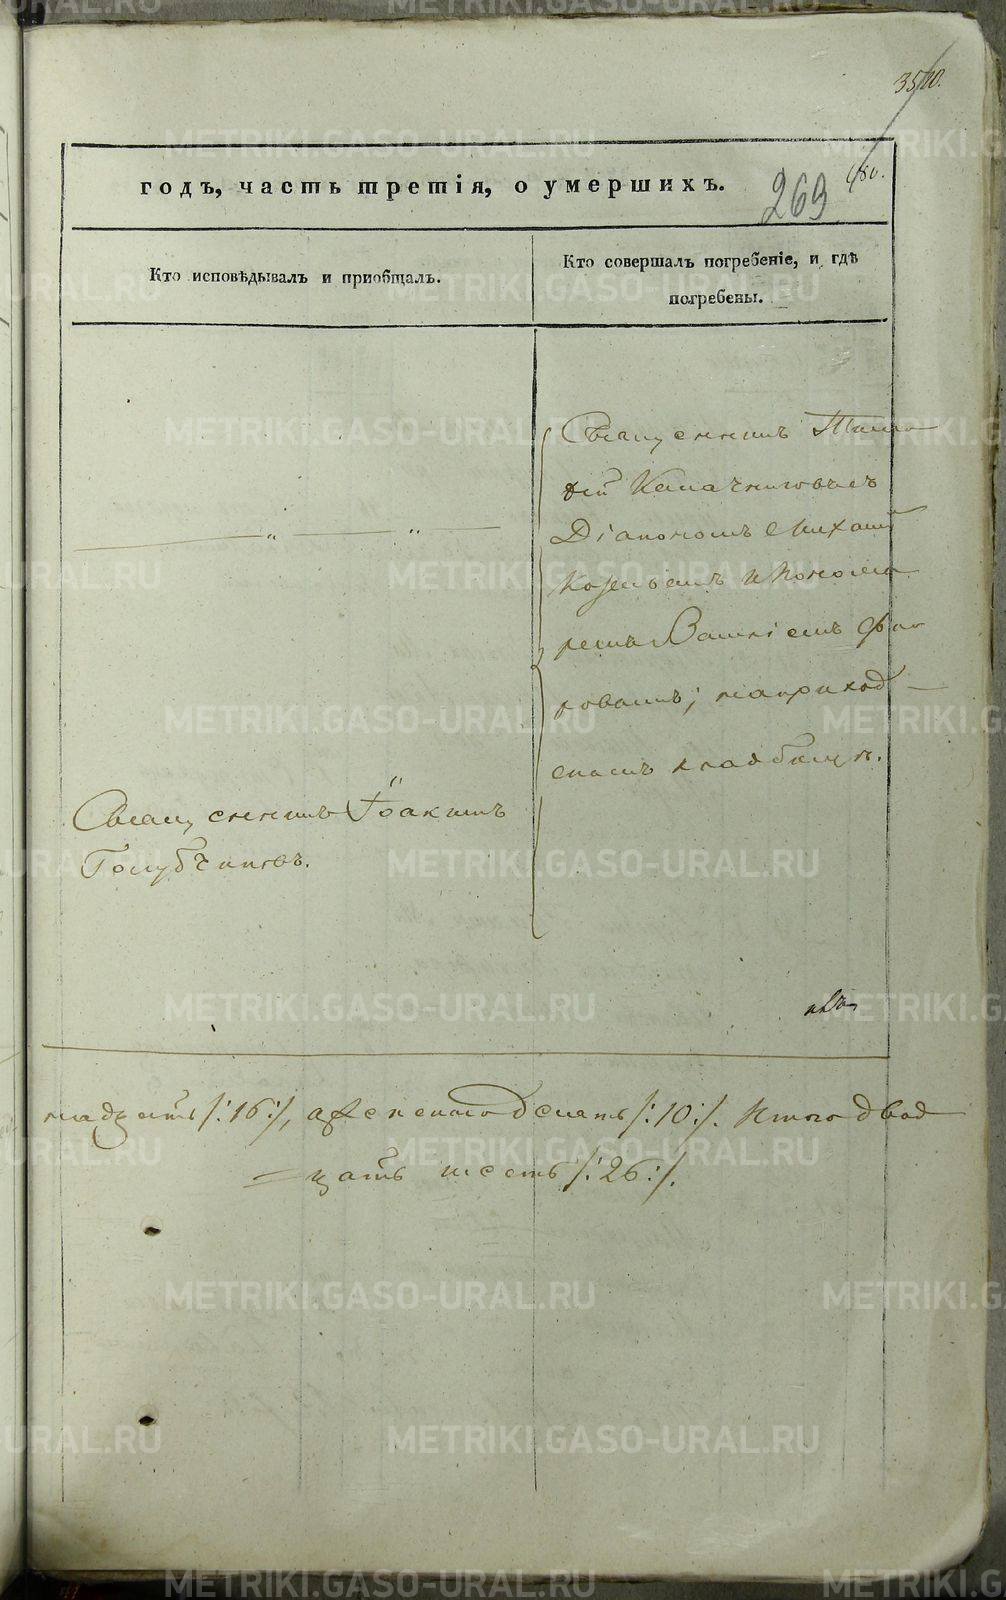 350.
180.
269
годъ, часть третія, о умершихъ.
Кто исповѣдывалъ и приобщалъ.
Кто совершалъ погребеніе, и гдѣ
погребены.
Священникъ Тимо
фей Калачниковъ съ
Діакономъ Михаил
и Понома
ремъ Василіемъ
на приход
скомъ кладбищѣ.
Священникъ Іоакимъ
Голубчиковъ.
надцать /:16:/, а женскаго десять /:10:/. Итого двад
цать шесть /:26:/.
METRIKI.GASO-URAL.RU